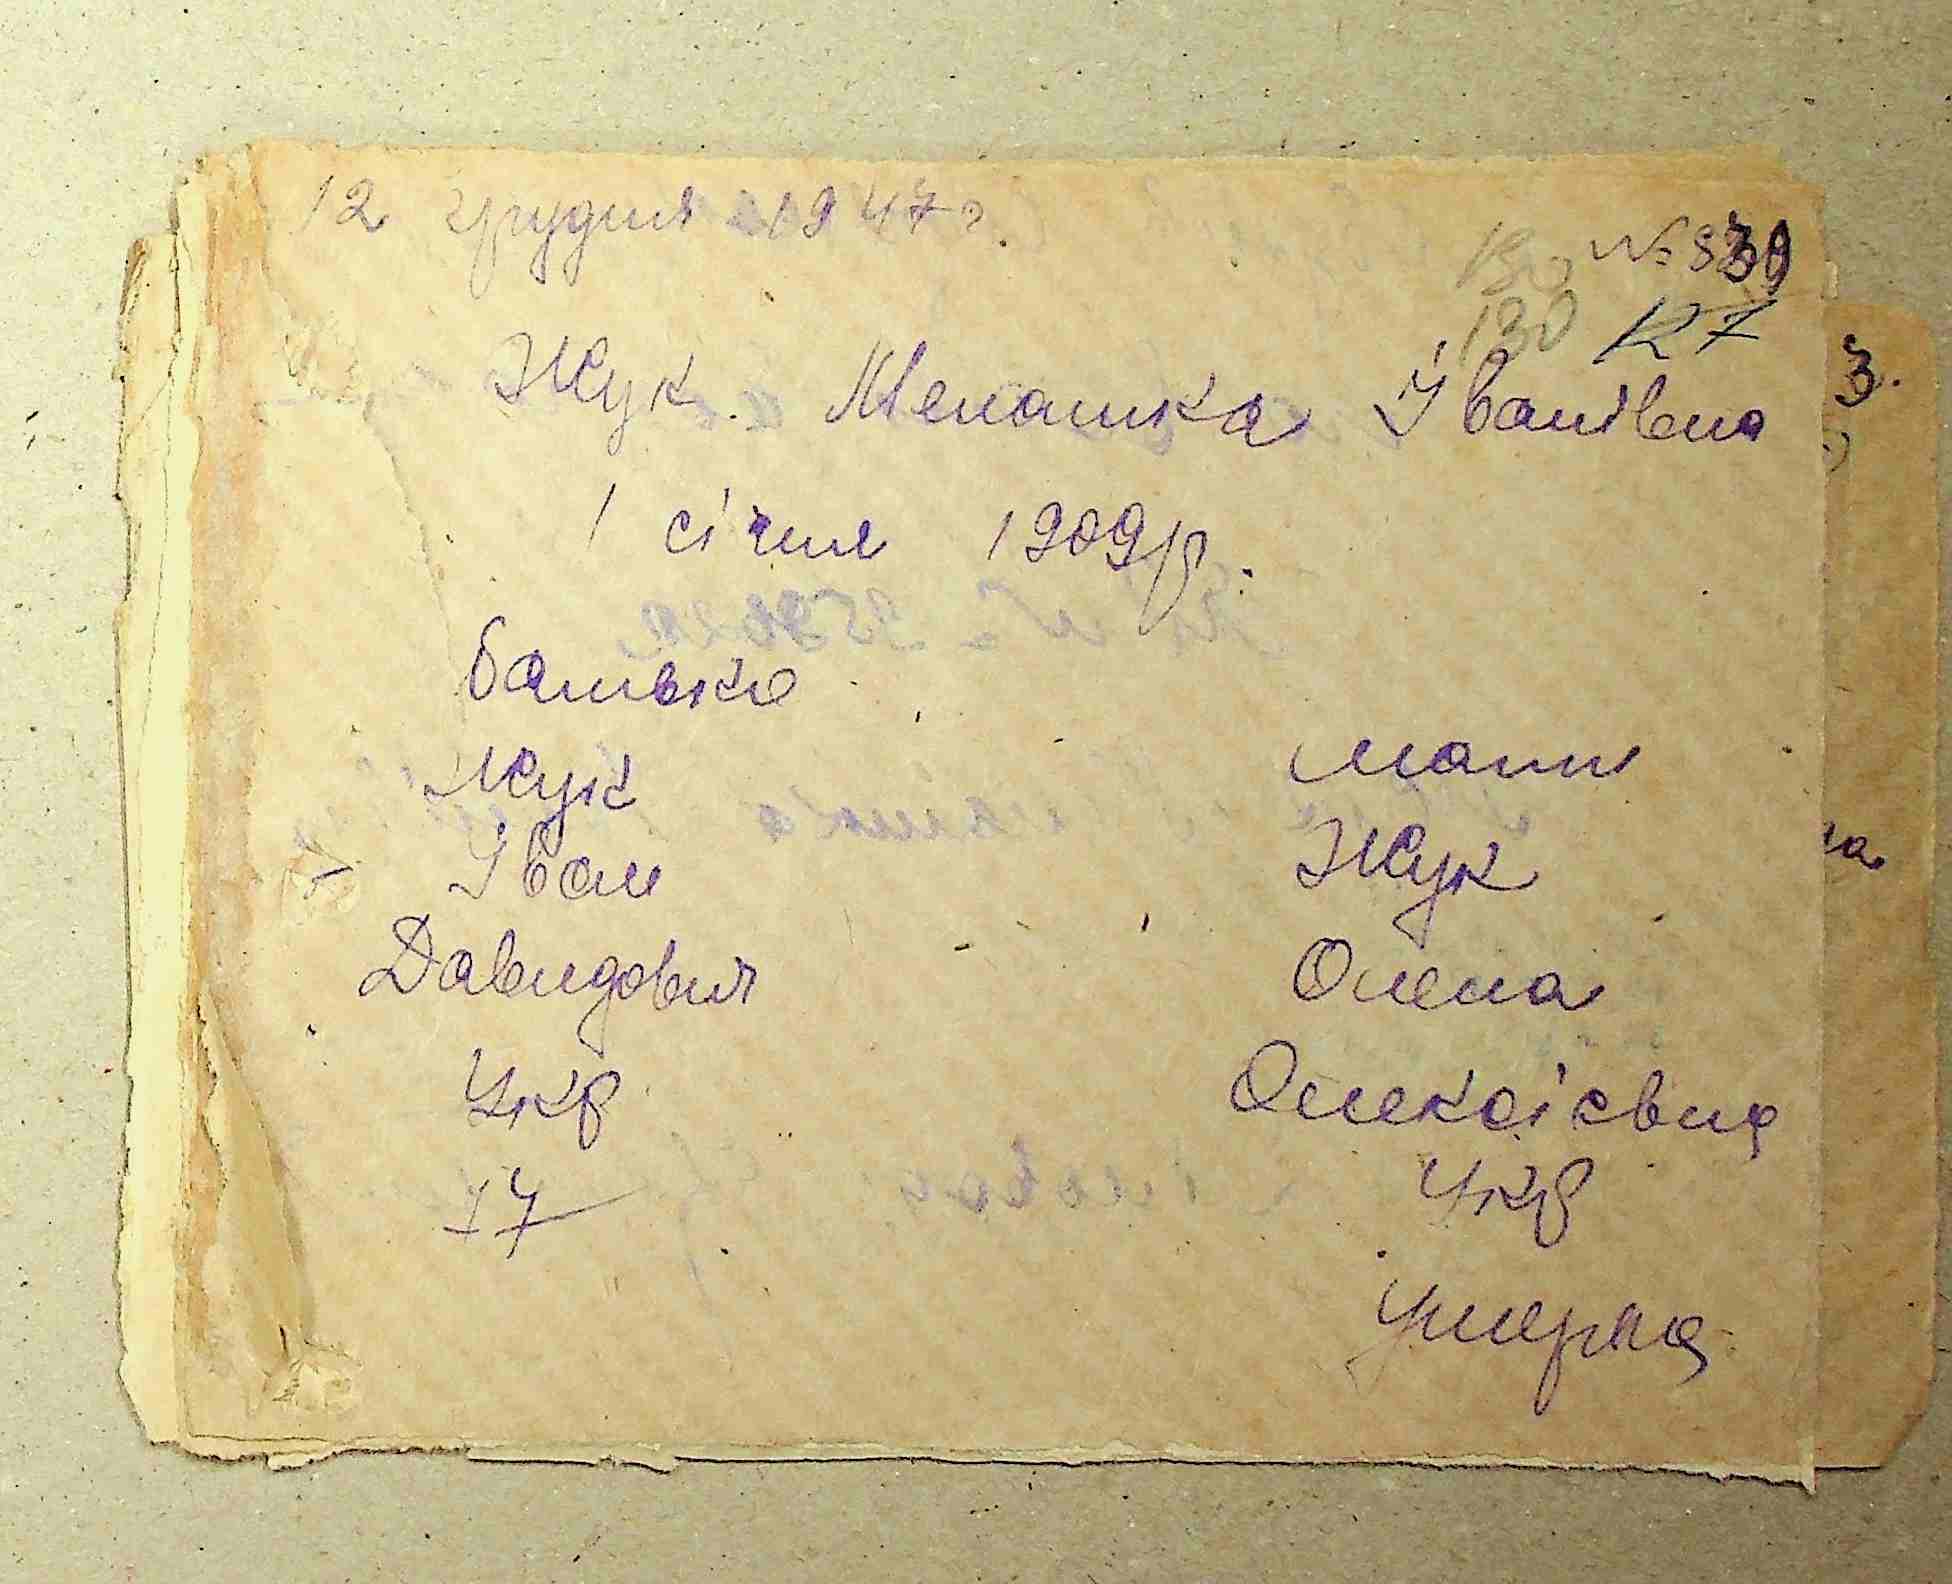 12 грудня 1947 г.
№ 339
130
130 К7
Жук Мелашка Іванівна
1 січня 1909 р.
батько
Жук
Іван
Давидович
Укр
77
мати
Жук
Олена
Олексієвна
Укр
умерла
3.
на